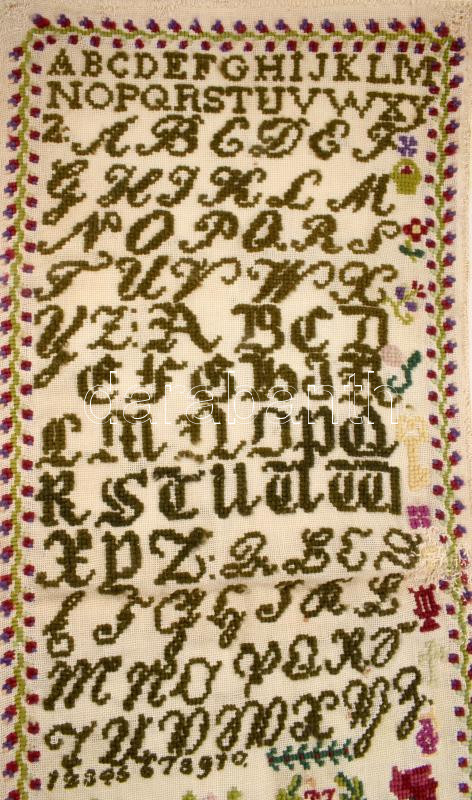 ABCDEFGHIJKLM
NOPQRSTUVWXY
Z: A B C D E F
G H I K L M
N O P Q R S
T U V W X
Y Z: A B C D
E F G H I K
L M N O P Q
R S T U V W
X Y Z:
M N O P Q R
T U V W X Y Z
1 2 3 4 5 6 7 8 9 10
darabanth